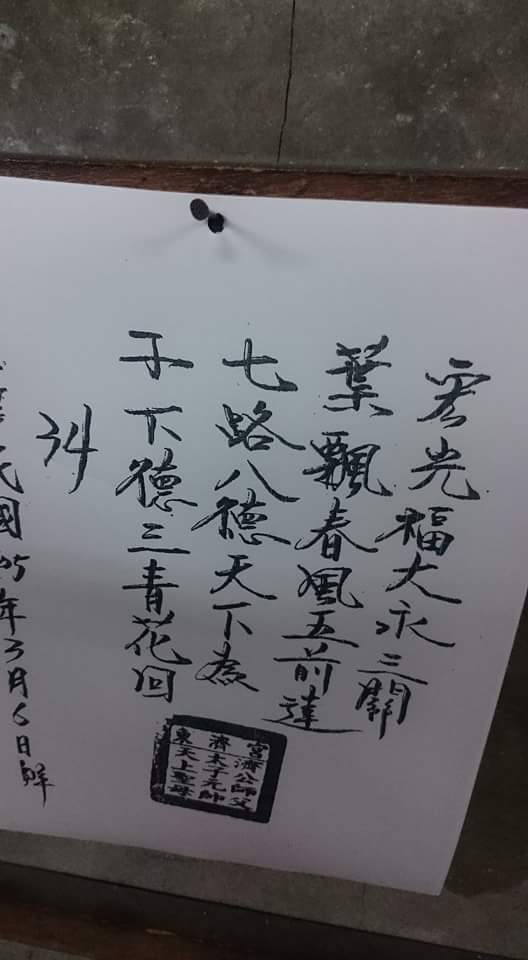 宏光福大永三關
葉飄春風五前達
七路八德天下為
子下德三青花回
34
民國105年3月6日
宮濟公師父
濟太子元帥
東天上聖母